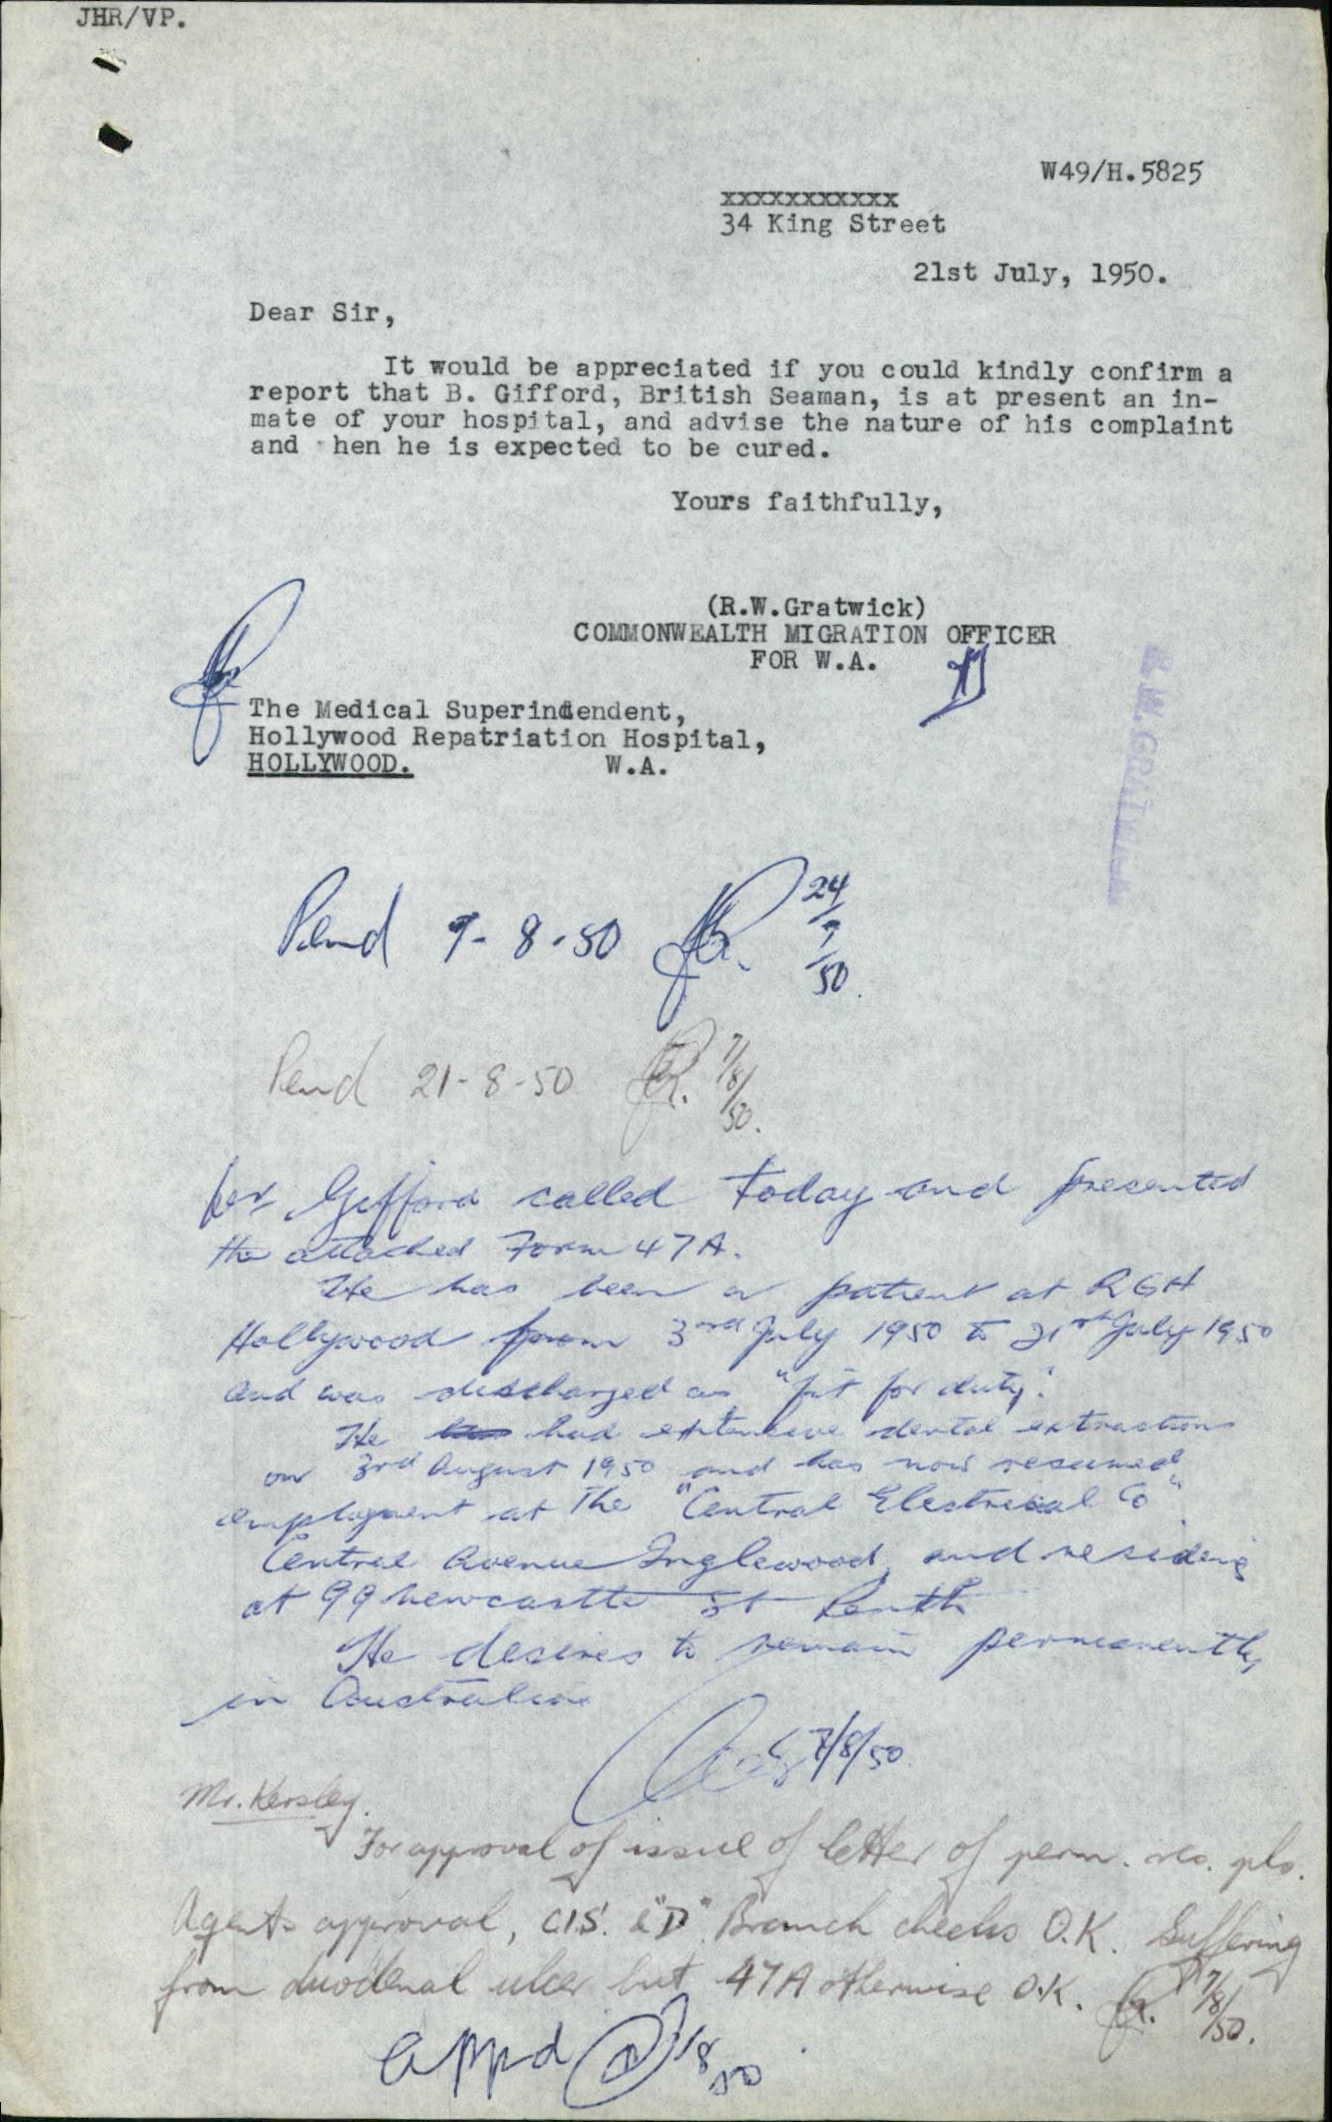 JHR/VP.
W49/H.5825
xxxxxxxxxxx
34 King Street
21st July, 1950.
Dear Sir,
It would be appreciated if you could kindly confirm a
report that B. Gifford, British Seaman, is at present an in-
mate of your hospital, and advise the nature of his complaint
and hen he is expected to be cured.
Yours faithfully,
(R.W.Gratwick)
COMMONWEALTH MIGRATION OFFICER
FOR W.A.
R.W.GRATWICK
The Medical Superindendent,
Hollywood Repatriation Hospital,
HOLLYWOOD. W.A.
Pend 9-8-50 24/7/50.
Pend 21-8-50 7/8/50.
Mr Gifford called today and presented
the attached Form 47A.
He has been a patient at RGH
Hollywood from 3rd July 1950 to 21st July 1950
and was discharged as "fit for duty".
He had extensive dental extractions
on 3rd August 1950 and has now resumed
employment at The "Central Electrical Co"
Central Avenue Inglewood, and residing
at 99 Newcastle St Perth
He desires to remain permanently
in Australia
7/8/50
Mr. Kersley.
For approval of issue of letter of perm. res. pls.
Agents approval, C.I.S. & "D" Branch checks O.K. Suffering
from duodenal ulcer but 47A otherwise O.K. 7/8/50.
Appd 7/8/50